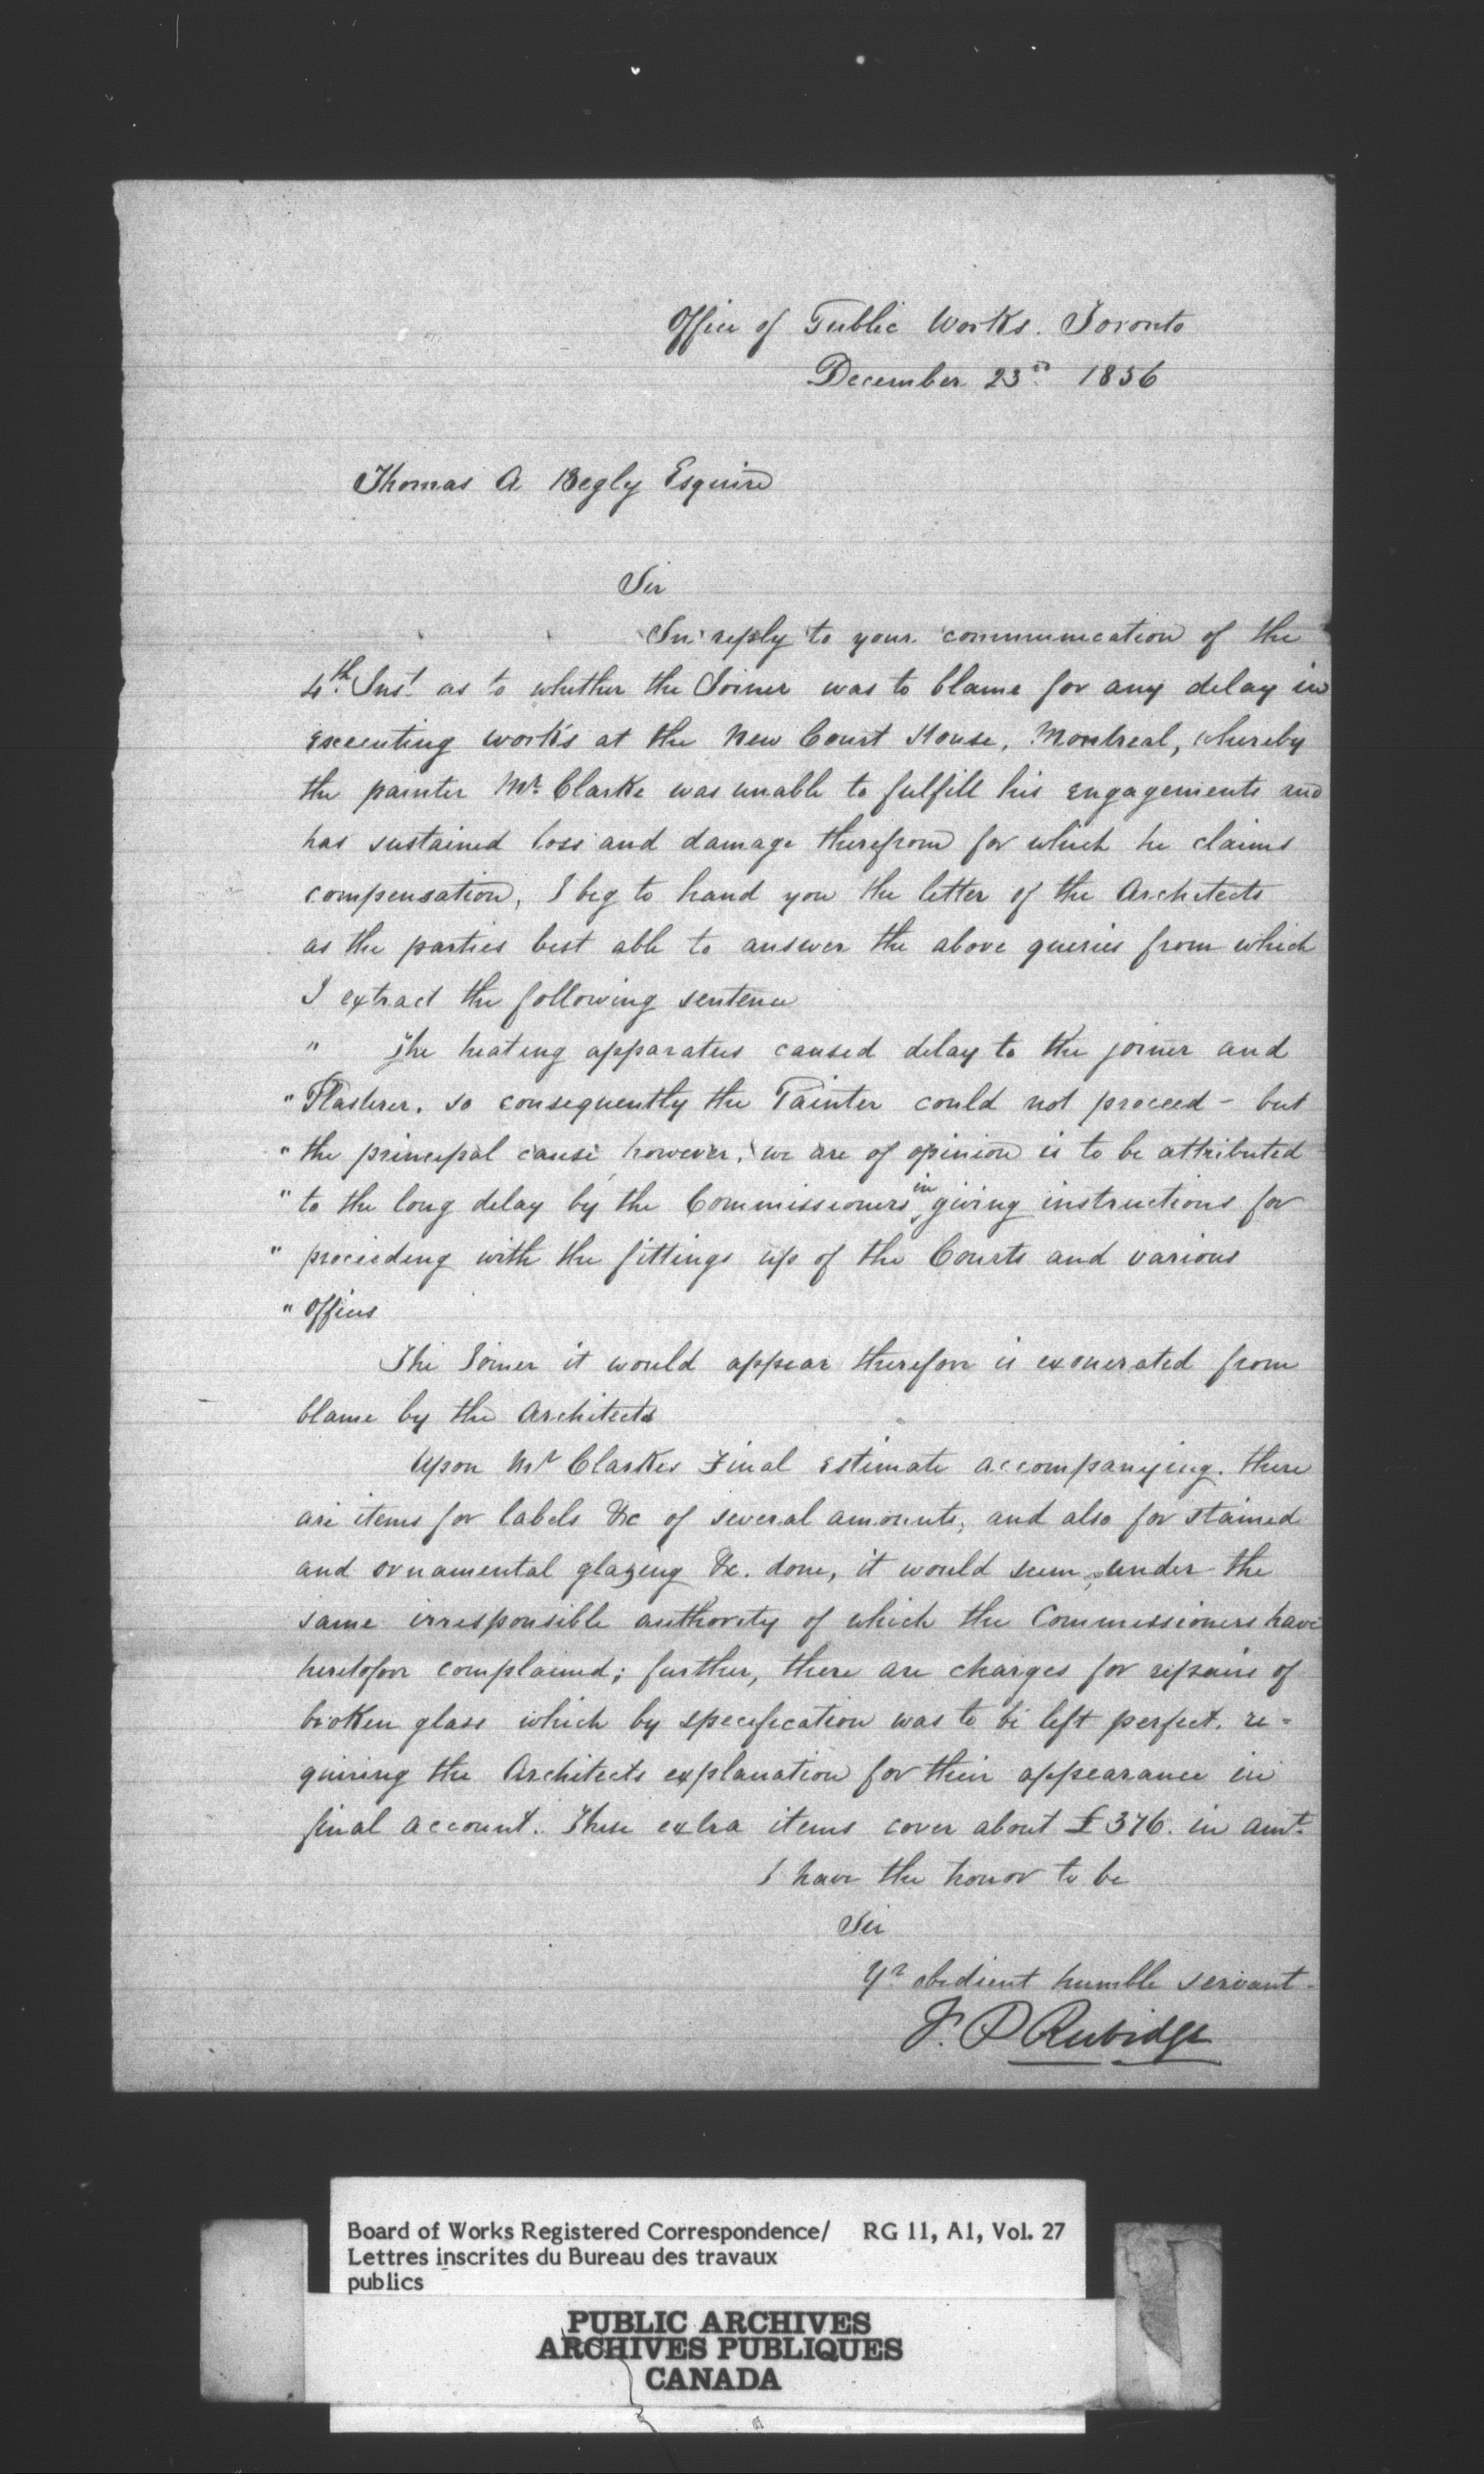 Office of Public Works. Toronto
December 23rd 1856
Thomas A Begly Esquire
Sir
In reply to your communication of the
4th Inst as to whether the Joiner was to blame for any delay in
executing works at the New Court House, Montreal, whereby
the painter Mr. Clarke was unable to fulfill his engagements and
has sustained loss and damage therefrom for which he claims
compensation, I beg to hand you the letter of the Architects
as the parties best able to answer the above queries from which
I extract the following sentence
" The heating apparatus caused delay to the joiner and
" Plasterer, so consequently the Painter could not proceed - but
" the principal cause, however, we are of opinion is to be attributed
" to the long delay by the Commissioners in giving instructions for
" proceeding with the fittings up of the Courts and various
" Offices
The Joiner it would appear therefore is exonerated from
blame by the Architects
Upon Mr Clarkes Final Estimate accompanying. there
are items for labels &c of several amounts, and also for stained
and ornamental glazing &c. done, it would seem, under the
same irresponsible authority of which the Commissioners have
heretofore complained; further, there are charges for repairs of
broken glass which by specification was to be left perfect. re-
quiring the Architects explanation for their appearance in
final account. These extra items cover about £376. in amt.
I have the honor to be
Sir
Yr obedient humble servant
F. P Rubidge
Board of Works Registered Correspondence/ RG 11, A1, Vol. 27
Lettres inscrites du Bureau des travaux
publics
PUBLIC ARCHIVES
ARCHIVES PUBLIQUES
CANADA